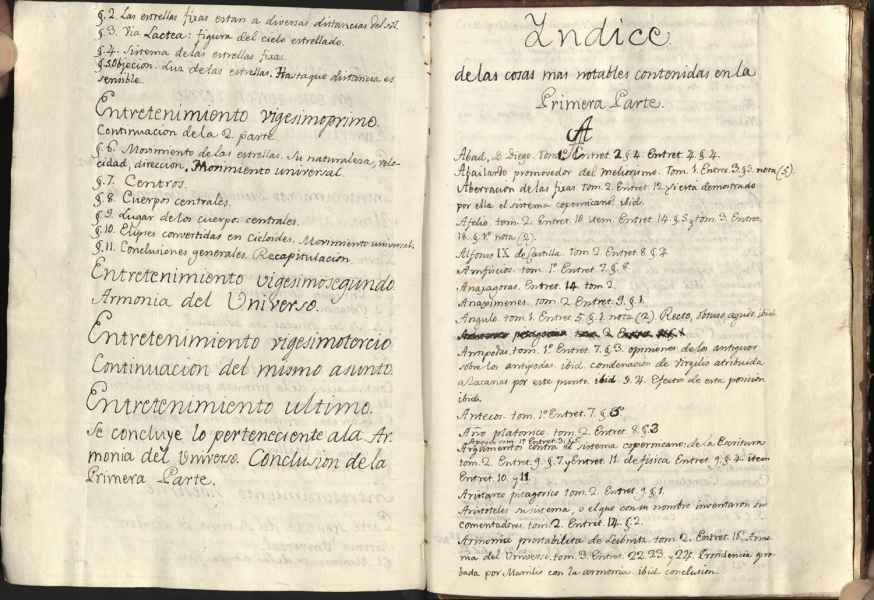 §. 2. Las estrellas fixas estan a diversas distancias del sol.
§. 3. Via Lactea: figura del cielo estrellado.
§. 4. Sistema de las estrellas fixas.
§. 5. Objecion. Luz de las estrellas. Hasta que distancia es
sensible.
Entretenimiento vigesimoprimo.
Continuacion de la 2. parte.
§. 6. Movimiento de las estrellas. Su naturaleza, velo-
cidad, direccion, Movimiento universal.
§. 7. Centros.
§. 8. Cuerpos centrales.
§. 9. Lugar de los cuerpos centrales.
§. 10. Elipses convertidas en Cicloides. Movimiento universal.
§. 11. Conclusiones generales. Recapitulacion.
Entretenimiento vigesimosegundo.
Armonia del Universo.
Entretenimiento vigesimotercio
Continuacion del mismo asunto.
Entretenimiento ultimo.
Se concluye lo perteneciente a la Ar-
monia del Universo. Conclusion de la
Primera Parte.
Indice
de las cosas mas notables contenidas en la
Primera Parte.
A
Abad, D. Diego. Tom. Entret. 2. § 4. Entret. 4. § 4.
promovedor del Tom. 1. Entret. 3. § 3. nota (5).
Aberracion de las fixas tom. 2. Entret. 12. y si está demostrado
por ella el sistema copernicano. ibid.
Afelio. tom. 2. Entret. 10. item. Entret. 14. § 5. y tom. 3. Entret.
18. § 1.º nota (2).
Alfonso IX de Castilla. tom. 2. Entret. 8. § 2
Amfiscios. tom. 1.º Entret. 7. § 8.
Anaxagoras. Entret. 14. tom 2.
Anaximenes. tom. 2 Entret. 9. § 1.
Angulo. tom. 1. Entret. 5. § 1. nota (2). Recto, obtuso, agudo, ibid.
Antipodas. tom. 1.º Entret. 7. § 3. opiniones de los antiguos
sobre los antipodas. ibid. condenacion de Virgilio atribuida
a Zacarias por este punto. ibid. § 4. Efectos de esta posicion
ibid.
Antecos. tom. 1.º Entret. 7. § 6
Año platonico. tom. 2. Entret. 8. § 3
Argumento contra el sistema copernicano: de la Escritura
tom. 2. Entret. 9. § 7. y Entret. 11. de fisica Entret. 9. § 4. item
Entret. 10. y 11.
Aristarco pitagorico tom. 2. Entret. 9. § 1.
Aristoteles su sistema, o el que con su nombre inventaron sus
comentadores. tom. 2. Entret. 14. § 2.
Armonia prestabilita de Leibnitz tom. 2. Entret. 15. Armo-
nia del Universo. tom. 3. Entret. 22. 23. y 24. Providencia pro-
bada por Manilio con la armonia. ibid. conclusion.